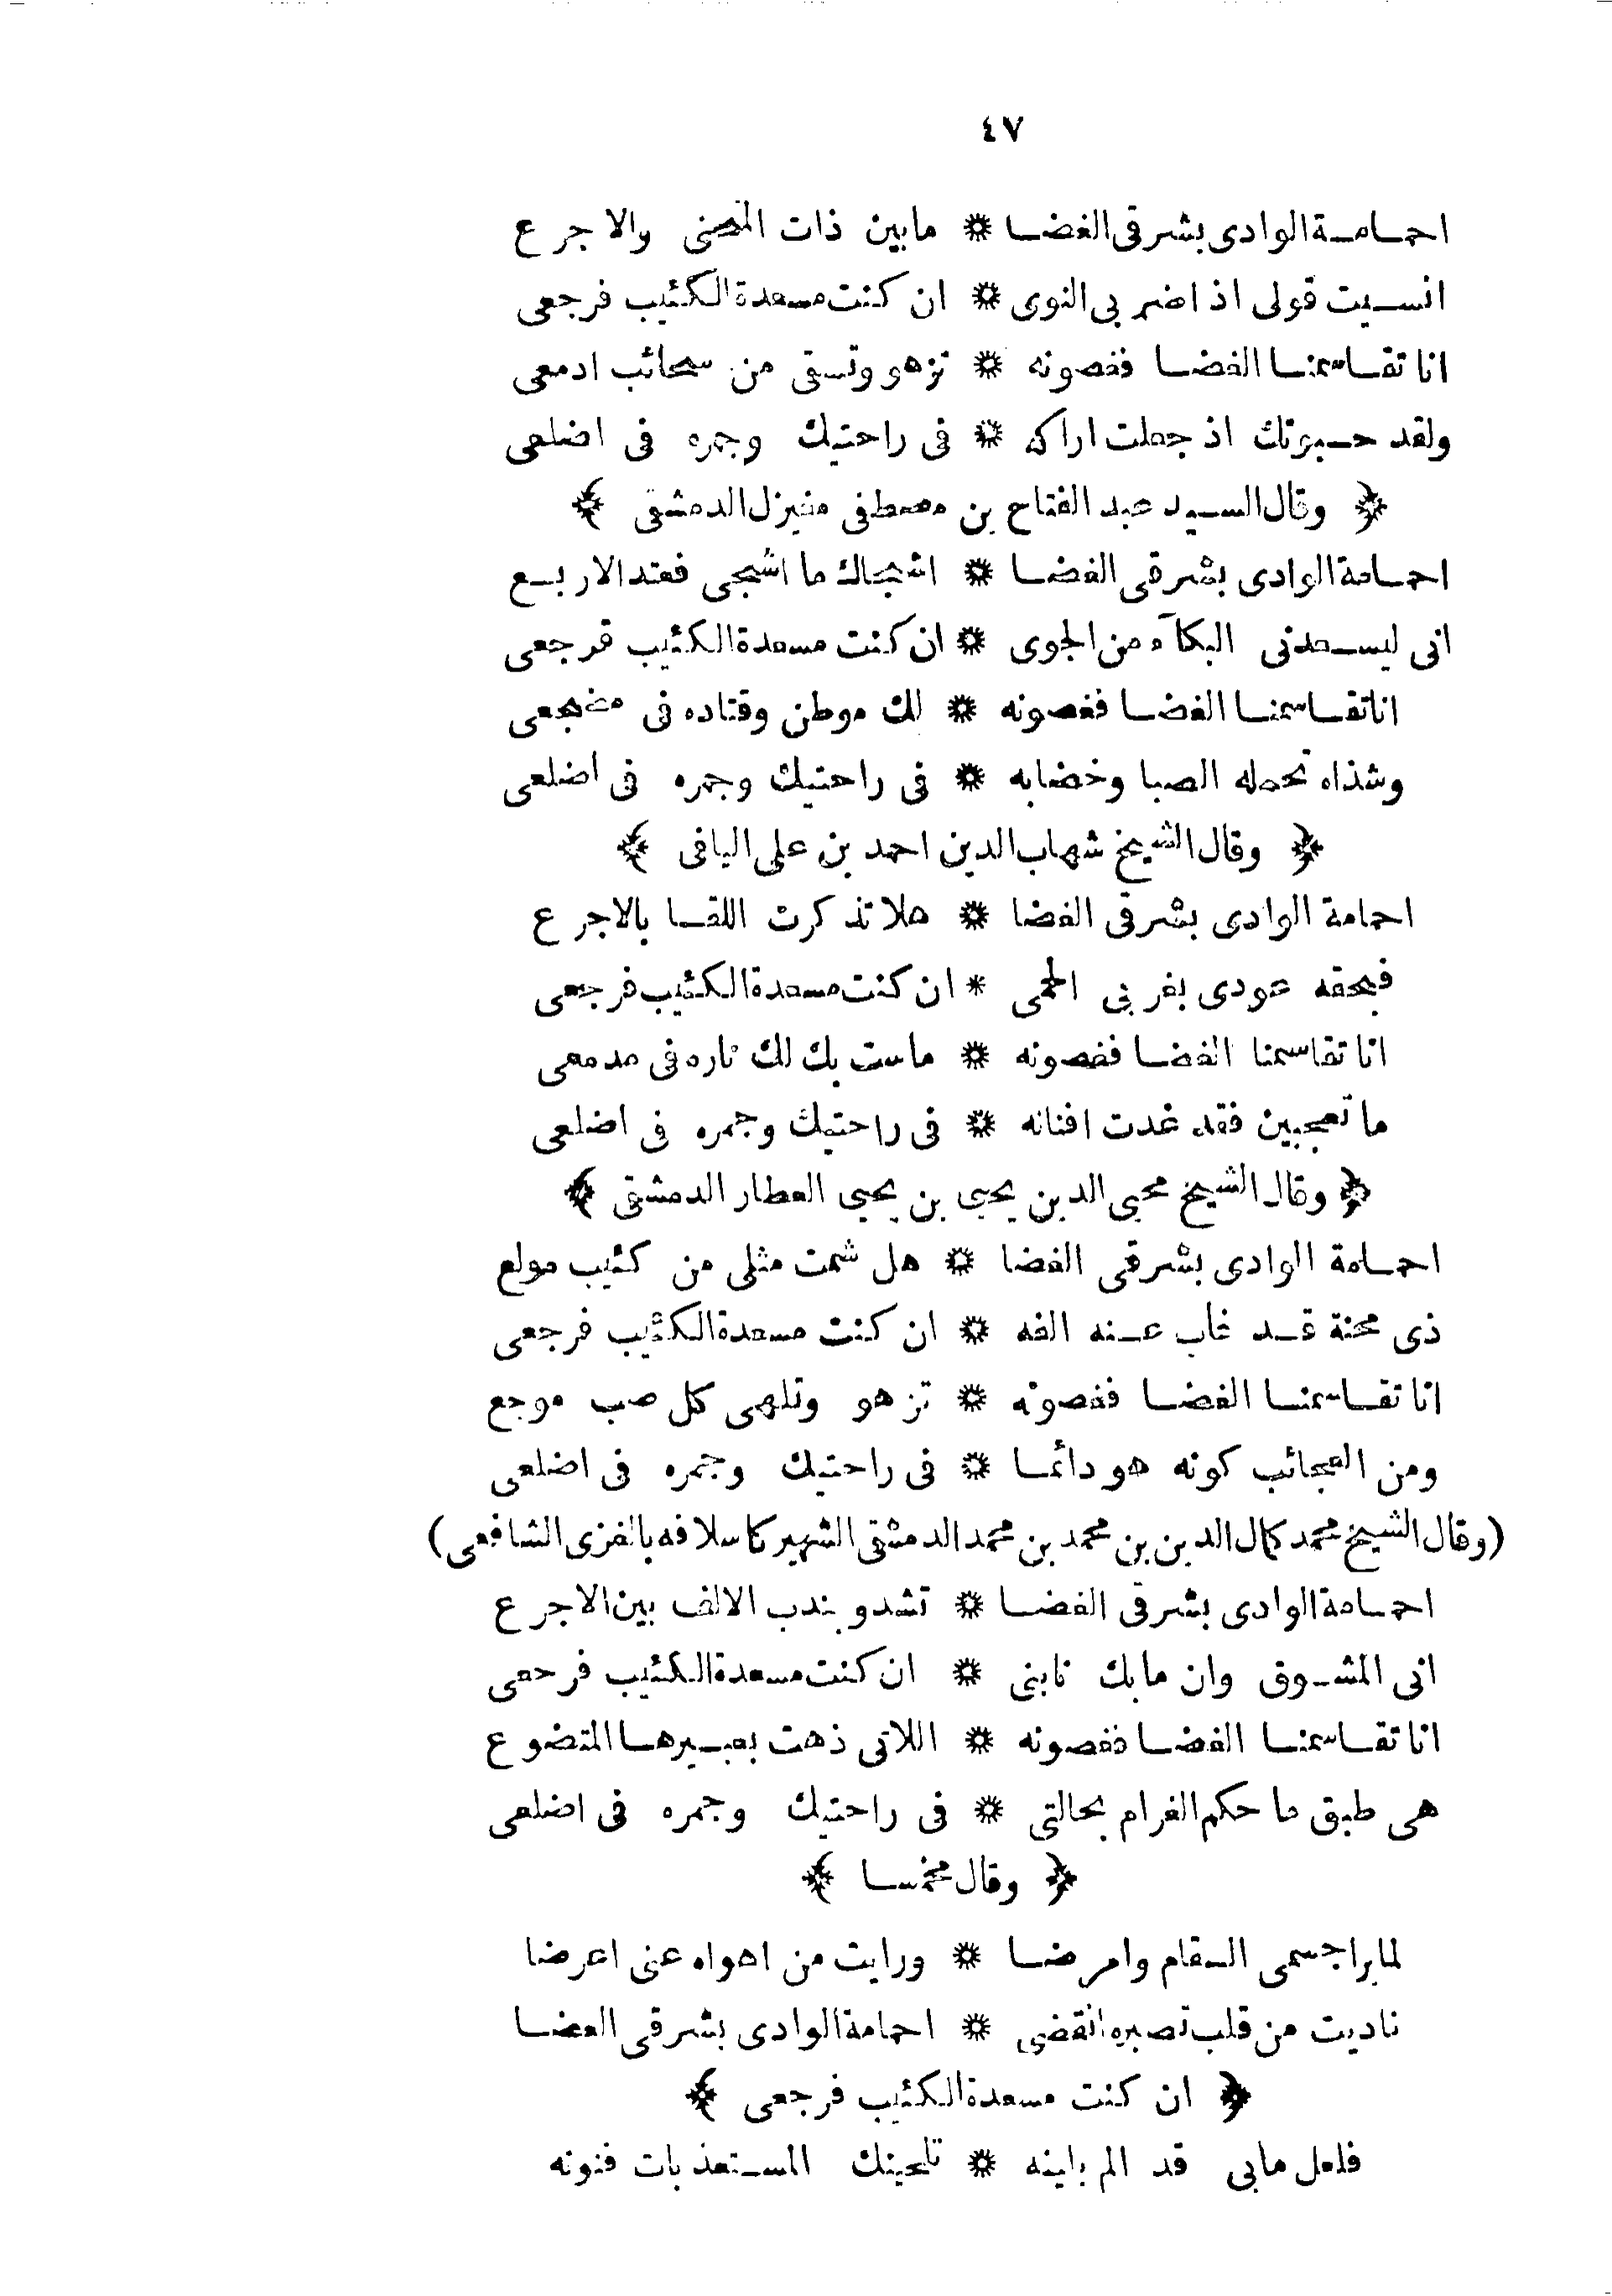 ٤٧
احمامة الوادى بشرقى الغضا * مابين ذات المنحنى والاجرع
انسيت قولى اذ اضر بى النوى * ان كنت مسعدة الكئيب فرجعى
انا تقاسمنا الغضا فغصونه * تزهو وتسقى من سحائب ادمعى
ولقد حيرتك اذ جعلت اراكه * فى راحتيك وجمره فى اضلعى
﴿ وقال السيد عبد الفتاح بن مصطفى مغيزل الدمشقى ﴾
احمامة الوادى بشرقى الغضا * اشجاك ما اشجى فعند الاربع
انى ليسعدنى البكآء من الجوى * ان كنت مسعدة الكئيب فرجعى
انا تقاسمنا الغضا فغصونه * لك موطن وقتاده فى مضجعى
وشذاه تحمله الصبا وخضابه * فى راحتيك وجمره فى اضلعى
﴿ وقال الشيخ شهاب الدين احمد بن على اليافى ﴾
احمامة الوادى بشرقى الغضا * هلا تذكرت اللقا بالاجرع
فبحقه عودى بغربى الحمى * ان كنت مسعدة الكئيب فرجعى
انا تقاسمنا الغضا فغصونه * ماست بك لك ناره فى مدمعى
ما تعجبين فقد غدت افنانه * فى راحتيك وجمره فى اضلعى
﴿ وقال الشيخ محيى الدين يحيى بن يحيى العطار الدمشقى ﴾
احمامة الوادى بشرقى الغضا * هل شمت مثلى من كئيب مولع
ذى محنة قد غاب عنه الفه * ان كنت مسعدة الكئيب فرجعى
انا تقاسمنا الغضا فغصونه * تزهو وتلهى كل صب موجع
ومن العجائب كونه هو دائما * فى راحتيك وجمره فى اضلعى
(وقال الشيخ محمد كمال الدين بن محمد بن محمد الدمشقى الشهير كاسلافه بالغزى الشافعى)
احمامة الوادى بشرقى الغضا * تشدو بندب الالف بين الاجرع
انى المشوق وان مابك نابنى * ان كنت مسعدة الكئيب فرجعى
انا تقاسمنا الغضا فغصونه * اللاتى ذهت بعبيرها المتضوع
هى طبق ما حكم الغرام بحالتى * فى راحتيك وجمره فى اضلعى
﴿ وقال مخمسا ﴾
لما برا جسمى السقام وامرضا * ورايت من اهواه عنى اعرضا
ناديت من قلب تصبره انقضى * احمامة الوادى بشرقى الغضا
﴿ ان كنت مسعدة الكئيب فرجعى ﴾
فلعل مابى قد الم باينه * تلحينك المستعذبات فنونه